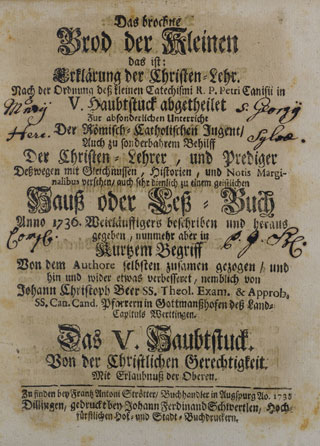 Das brochne
Brod der Kleinen
das ist:
Erklärung der Christen-Lehr.
Nach der Ordnung deß kleinen Catechismi R. P. Petri Canisii in
V. Haubtstuck abgetheilet
Zur absonderlichen Unterricht
Der Römisch-Catholischen Jugent/
Auch zu sonderbahrem Behilff
Der Christen-Lehrer, und Prediger
Deßwegen mit Gleichnussen, Historien, und Notis Margi-
nalibus versehen/ auch sehr dienlich zu einem geistlichen
Hauß oder Leß-Buch
Anno 1736. Weitläuffigers beschriben und heraus
gegeben, nunmehr aber in
Kurtzem Begriff
Von dem Authore selbsten zusamen gezogen/ und
hin und wider etwas verbesseret, nemblich von
Johann Christoph Beer SS. Theol. Exam. & Approb.
SS. Can. Cand. Pfarrern in Gottmanßhofen deß Land-
Capituls Wertingen.
Das V. Haubtstuck.
Von der Christlichen Gerechtigkeit.
Mit Erlaubnuß der Oberen.
Zu finden bey Frantz Antoni Strötter/ Buchhandler in Augspurg Ao.
Dillingen, gedruckt bey Johann Ferdinand Schwertlen, Hoch-
fürstlichen Hof- und Stadt-Buchdruckern.